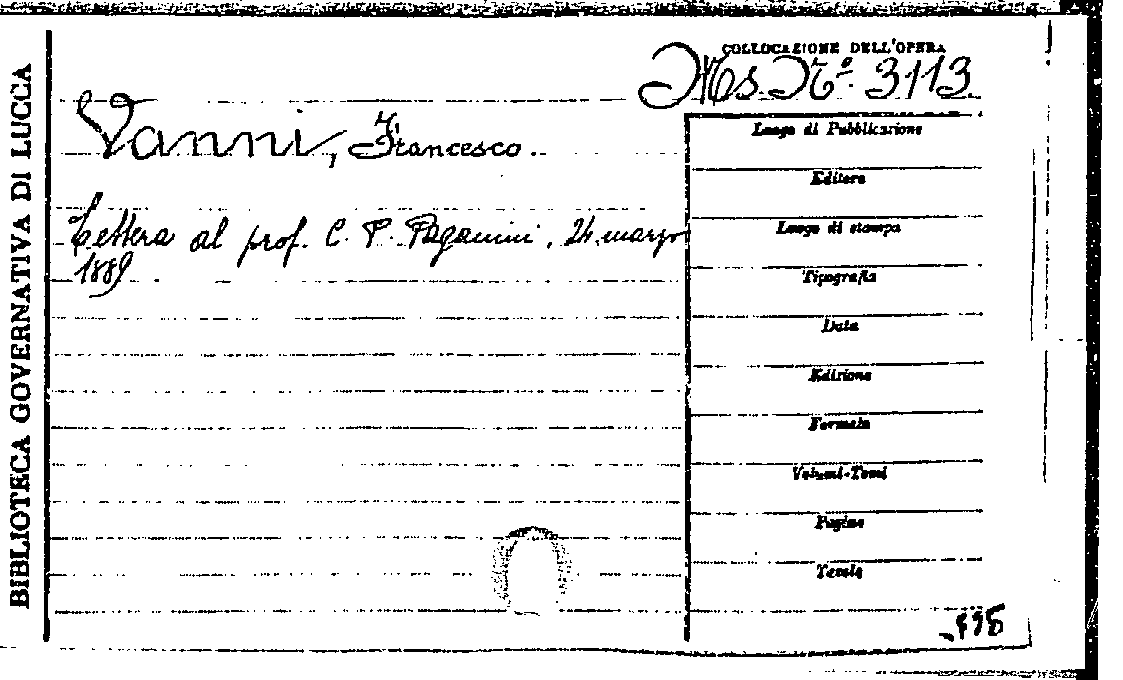 BIBLIOTECA GOVERNATIVA DI LUCCA
COLLOCAZIONE DELL'OPERA
Ms. Nº. 3113.
Vanni, Francesco.
Lettera al prof. C. P. Paganini, 24 marzo
1889
Luogo di Pubblicazione
Editore
Luogo di stampa
Tipografia
Data
Edizione
Formato
Volumi-Tomi
Pagine
Tavole